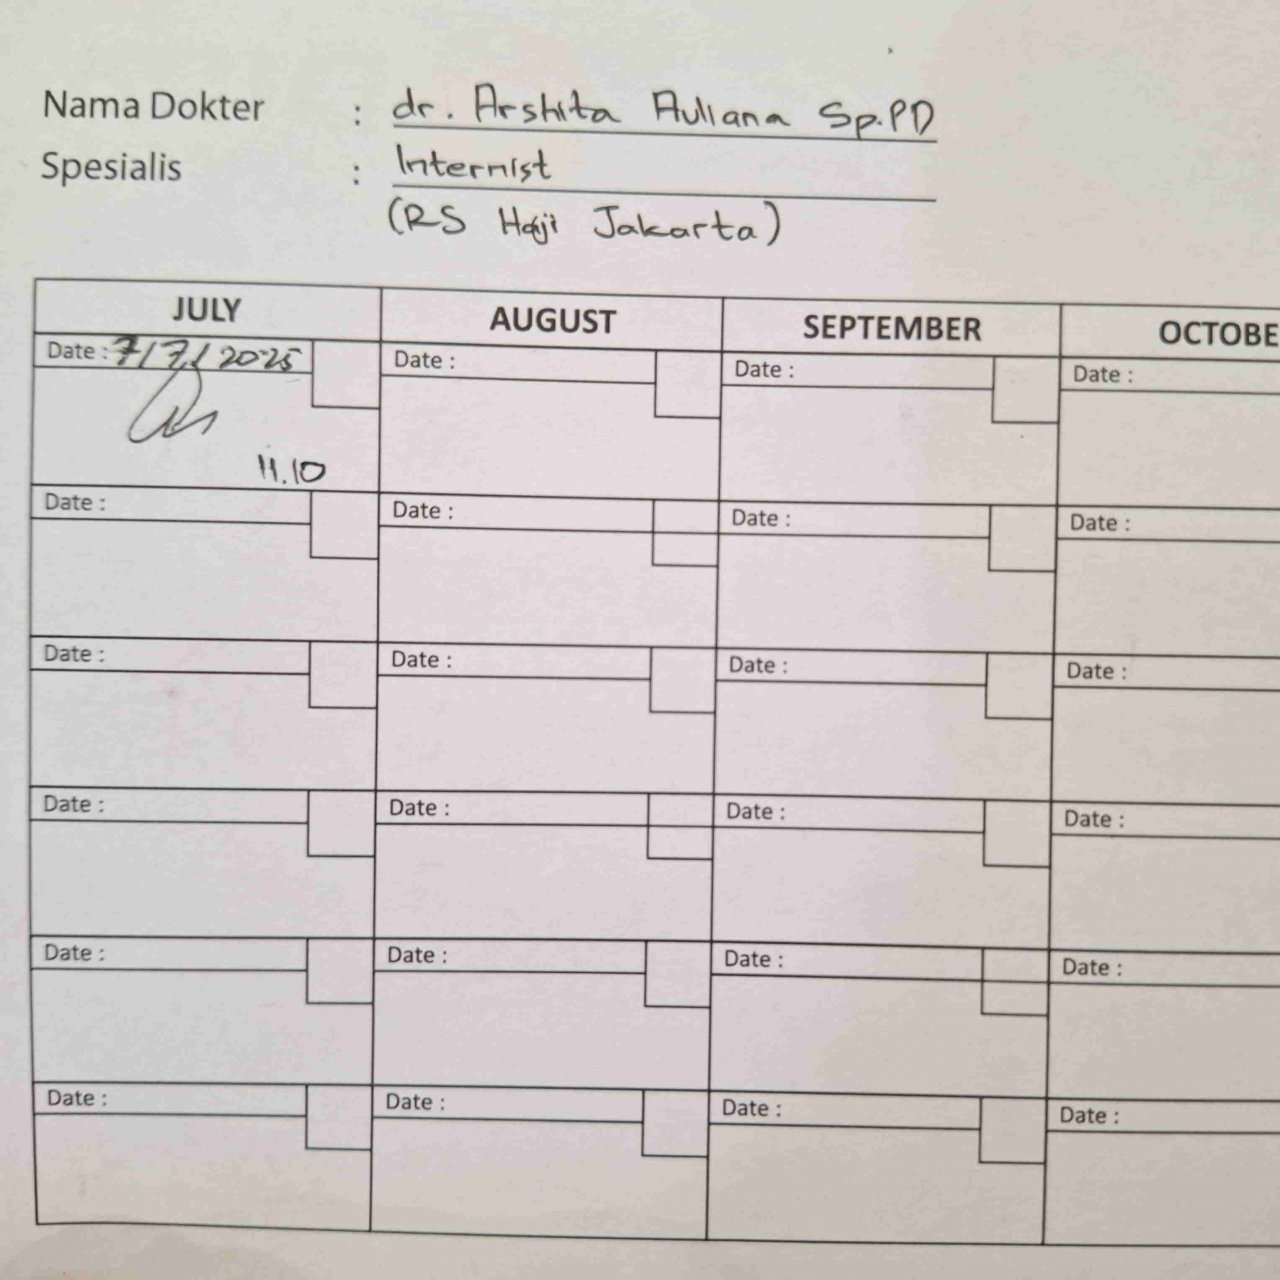 Nama Dokter : dr. Arshita Auliana Sp.PD
Spesialis : Internist
(RS Haji Jakarta)
JULY AUGUST SEPTEMBER OCTOBE
Date : 7/7/2025 Date : Date : Date :
11.10
Date : Date : Date : Date :
Date : Date : Date : Date :
Date : Date : Date : Date :
Date : Date : Date : Date :
Date : Date : Date : Date :